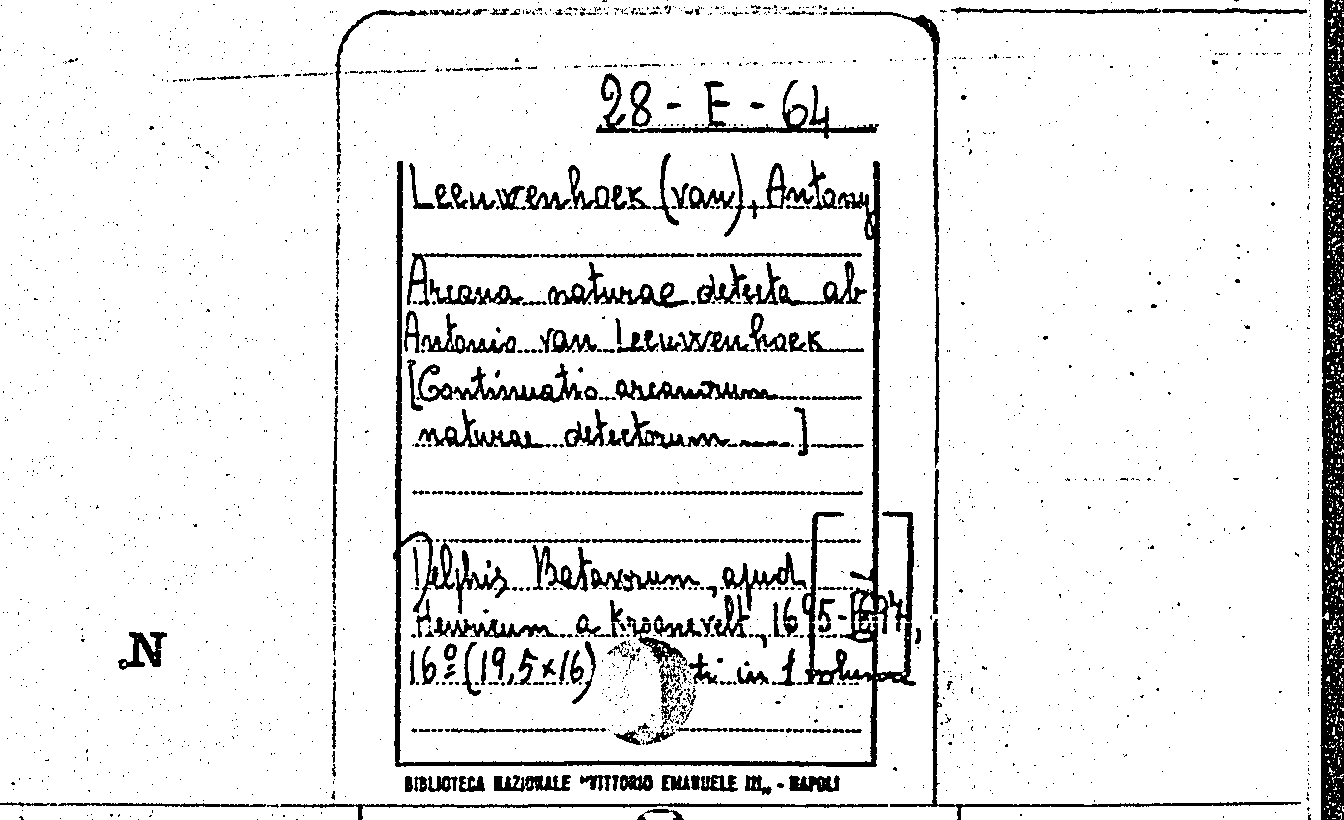 28 - E - 64
Leeuwenhoek (van), Antony
Arcana naturae detecta ab
Antonio van Leeuwenhoek
[Continuatio arcanorum
naturae detectorum ___]
Delphis Batavorum, apud
Henricum a Kroonevelt, 1695-1697,
16º (19,5x16) ti in 1 volume
N
BIBLIOTECA NAZIONALE "VITTORIO EMANUELE III„ - NAPOLI